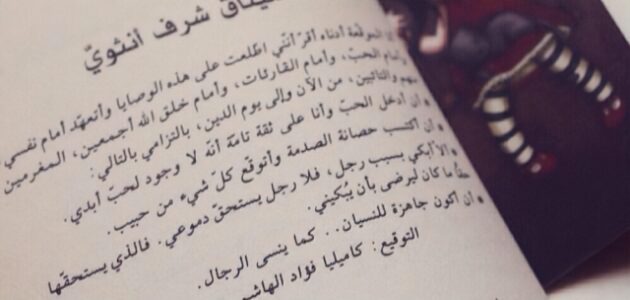 ميثاق شرف أنثويّ
الموقّعة أدناه أقرّ أنّني اطّلعت على هذه الوصايا وأتعهّد أمام نفسي
وأمام الحبّ، وأمام القارئات، وأمام خلق الله أجمعين، المغرمين
منهم والتائبين، من الآن وإلى يوم الدين، بالتزامي بالتالي:
• أن أدخل الحبّ وأنا على ثقة تامّة أنّه لا وجود لحبّ أبدي.
• أن أكتسب حصانة الصدمة وأتوقّع كلّ شيء من حبيب.
• ألّا أبكي بسبب رجل، فلا رجل يستحقّ دموعي. فالذي يستحقّها
حقّاً ما كان ليرضى بأن يُبكيني.
• أن أكون جاهزة للنسيان.. كما ينسى الرجال.
التوقيع: كاميليا فؤاد